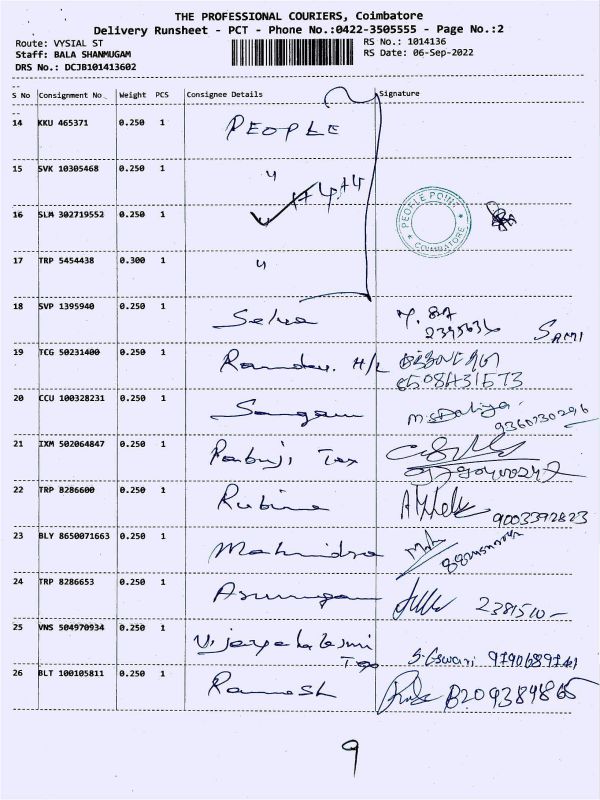 THE PROFESSIONAL COURIERS, Coimbatore
Delivery Runsheet - PCT - Phone No.:0422-3505555 - Page No.:2
Route: VYSIAL ST
RS No.: 1014136
Staff: BALA SHANMUGAM
RS Date: 06-Sep-2022
DRS No.: DCJB101413602
S No Consignment No. Weight PCS Consignee Details Signature
14 KKU 465371 0.250 1 PEOPLE
15 SVK 10305468 0.250 1 "
16 SLM 302719552 0.250 1
PEOPLE POINT
* COIMBATORE *
17 TRP 5454438 0.300 1 "
18 SVP 1395940 0.250 1 Selva
SAMI
19 TCG 50231400 0.250 1 Ramdev. H/L
20 CCU 100328231 0.250 1 Sangam
9360730296
21 IXM 502064847 0.250 1 Pabuji Tex
22 TRP 8286600 0.250 1 Rubina 9003392823
23 BLY 8650071663 0.250 1 Mahindra
24 TRP 8286653 0.250 1 Arumugam
25 VNS 504970934 0.250 1 Vijayalakshmi
Tex
26 BLT 100105811 0.250 1 Ramesh
9